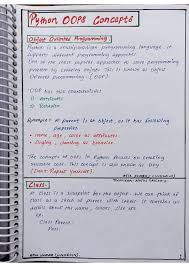 Python OOPS Concepts
Object Oriented Programming
Python is a multiparadigm programming language, it
supports different programming approaches.
One of the most popular approaches is solve programming
problem by creating objects. This is known as Object
Oriented Programming - (OOP)
OOP has two characteristics
1) Attributes
2) Behavior
Example: A Parrot is an object, as it has following
properties
name, age, color as attributes
singing, dancing as behavior
The concepts of OOP in Python focuses on creating
reusable code. This concept is also known as Dry
(Don't Repeat Yourself)
Class -
A class is a blueprint for the object. We can think of
class as a sketch of parrot with labels. It contains all
details about the name, colors, size etc.
eg.
Class Parrot:
Pass